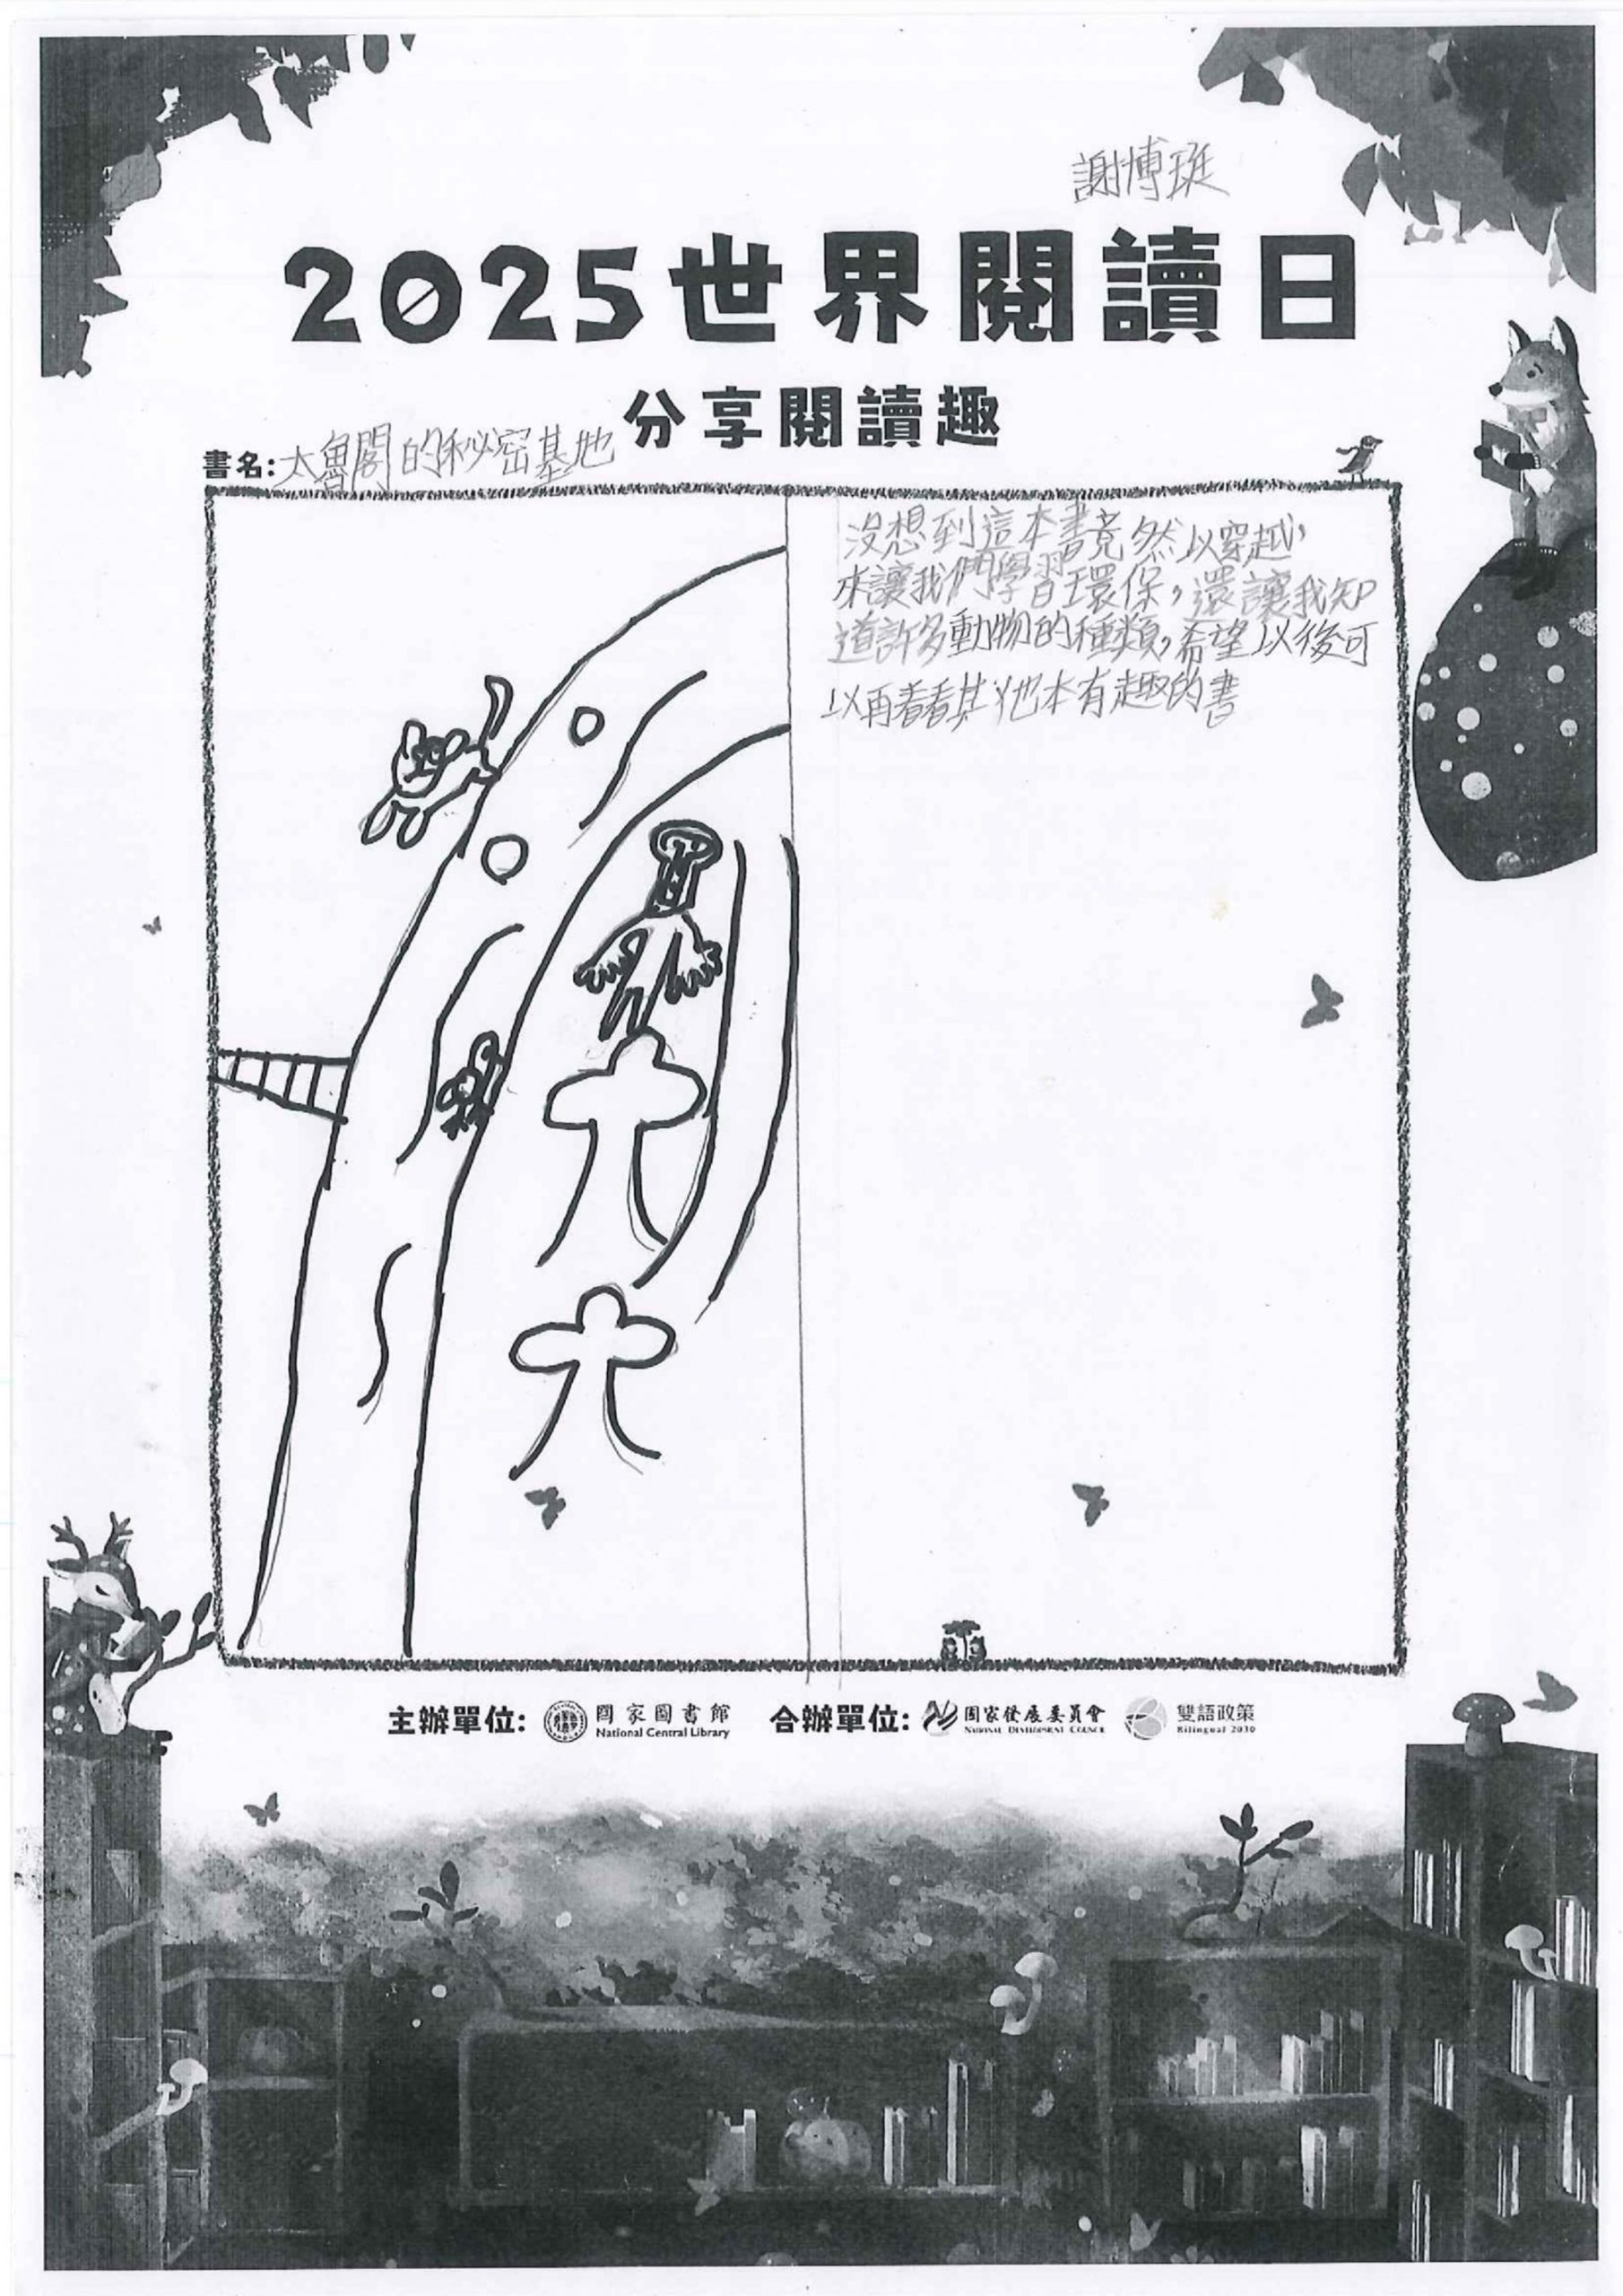 謝博珽
2025世界閱讀日
分享閱讀趣
書名:太魯閣的秘密基地
沒想到這本書竟然以穿越,
來讓我們學習環保,還讓我知
道許多動物的種類,希望以後可
以再看看其他本有趣的書
主辦單位: 國家圖書館 National Central Library 合辦單位: 國家發展委員會 NATIONAL DEVELOPMENT COUNCIL 雙語政策 Bilingual 2030